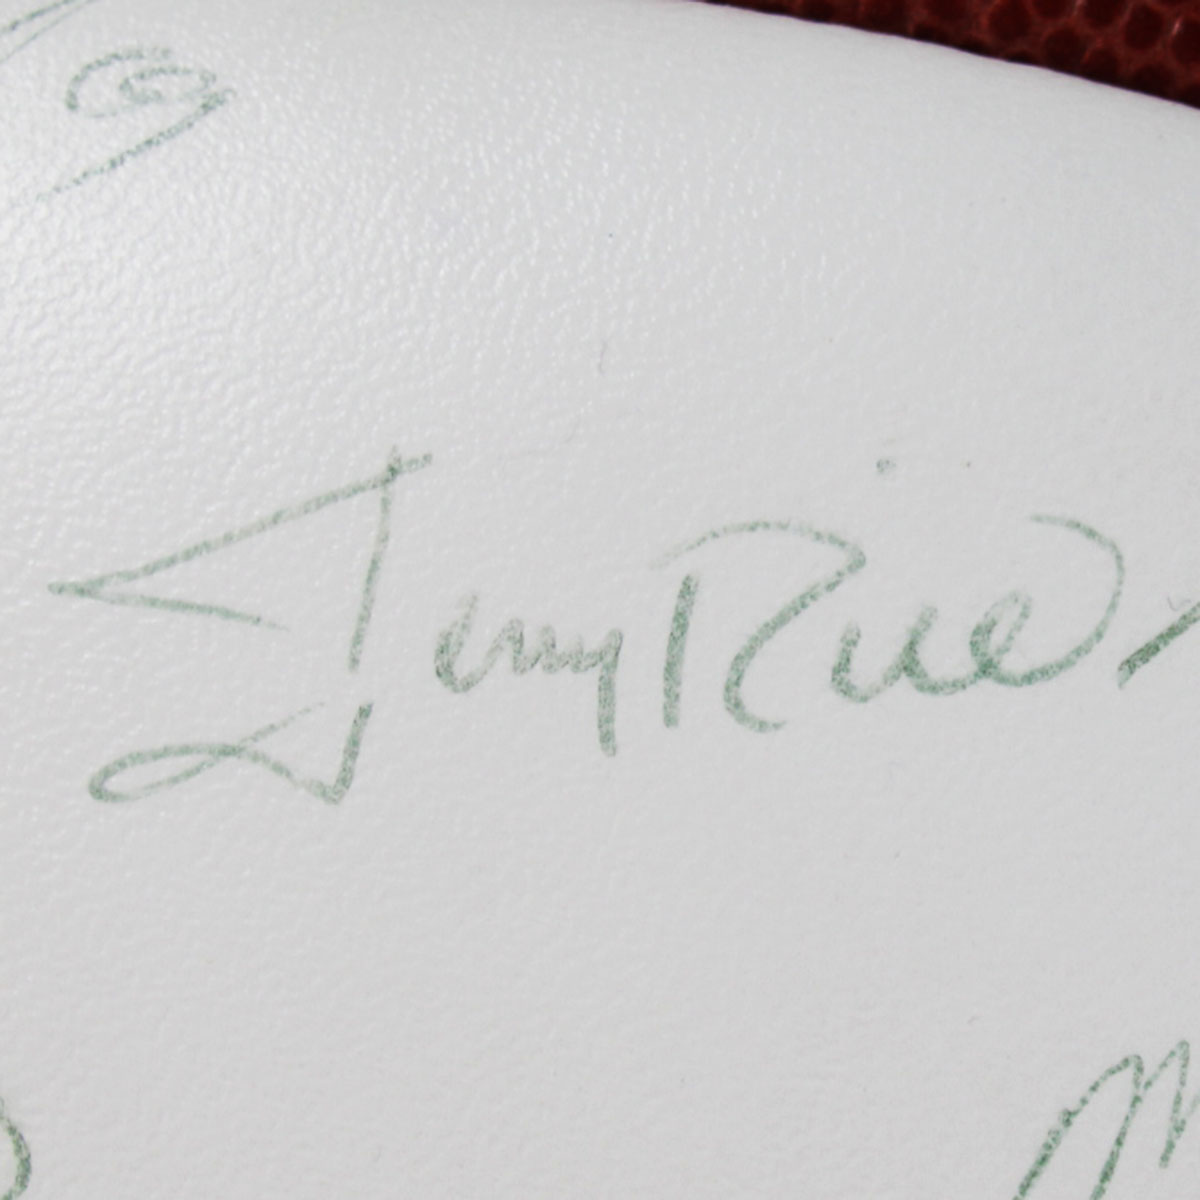 Jerry Rice